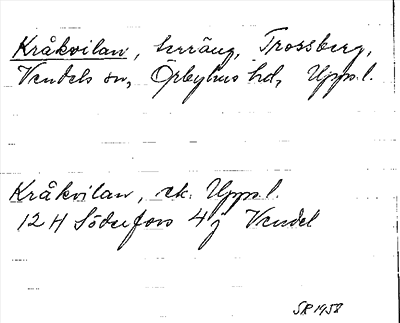 Kråkvilan, terräng, Trossberg,
Vendels sn, Örbyhus hd, Upps.l.
Kråkvilan, ek. Upps l.
12 H Söderfors 4j Vendel
SR 1958